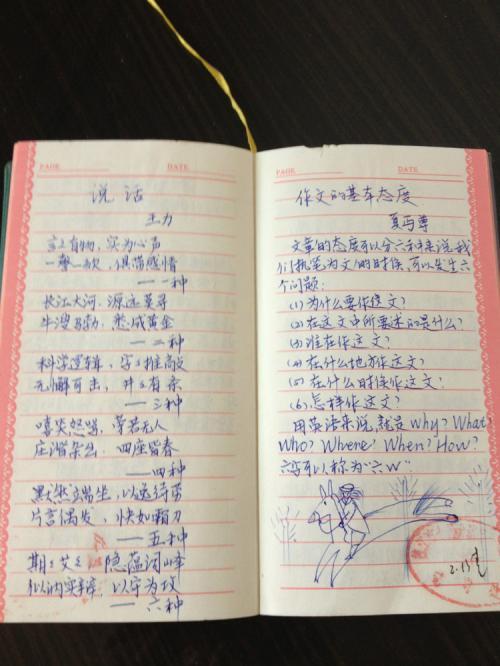 PAGE DATE
说话
王力
言之有物，实为心声
一謦一欬，俱带感情
——一种
长江大河，源远莫寻
牛溲马勃，悉成黄金
——二种
科学逻辑，字字推敲
无懈可击，井井有条
——三种
嘻笑怒骂，旁若无人
庄谐杂出，四座皆春
——四种
默然端坐，以逸待劳
片言偶发，快如霜刀
——五种
期期艾艾，隐蕴词锋
似讷实辩，以守为攻
——六种
PAGE DATE
作文的基本态度
夏丏尊
文章的态度可以分六种来说，我
们执笔为文的时候，可以发生六
个问题：
(1)为什么要作这文？
(2)在这文中所要述的是什么？
(3)谁在作这文？
(4)在什么地方作这文？
(5)在什么时候作这文？
(6)怎样作这文？
用英语来说，就是Why? What?
Who? Where? When? How?
六字可以称为“六W”